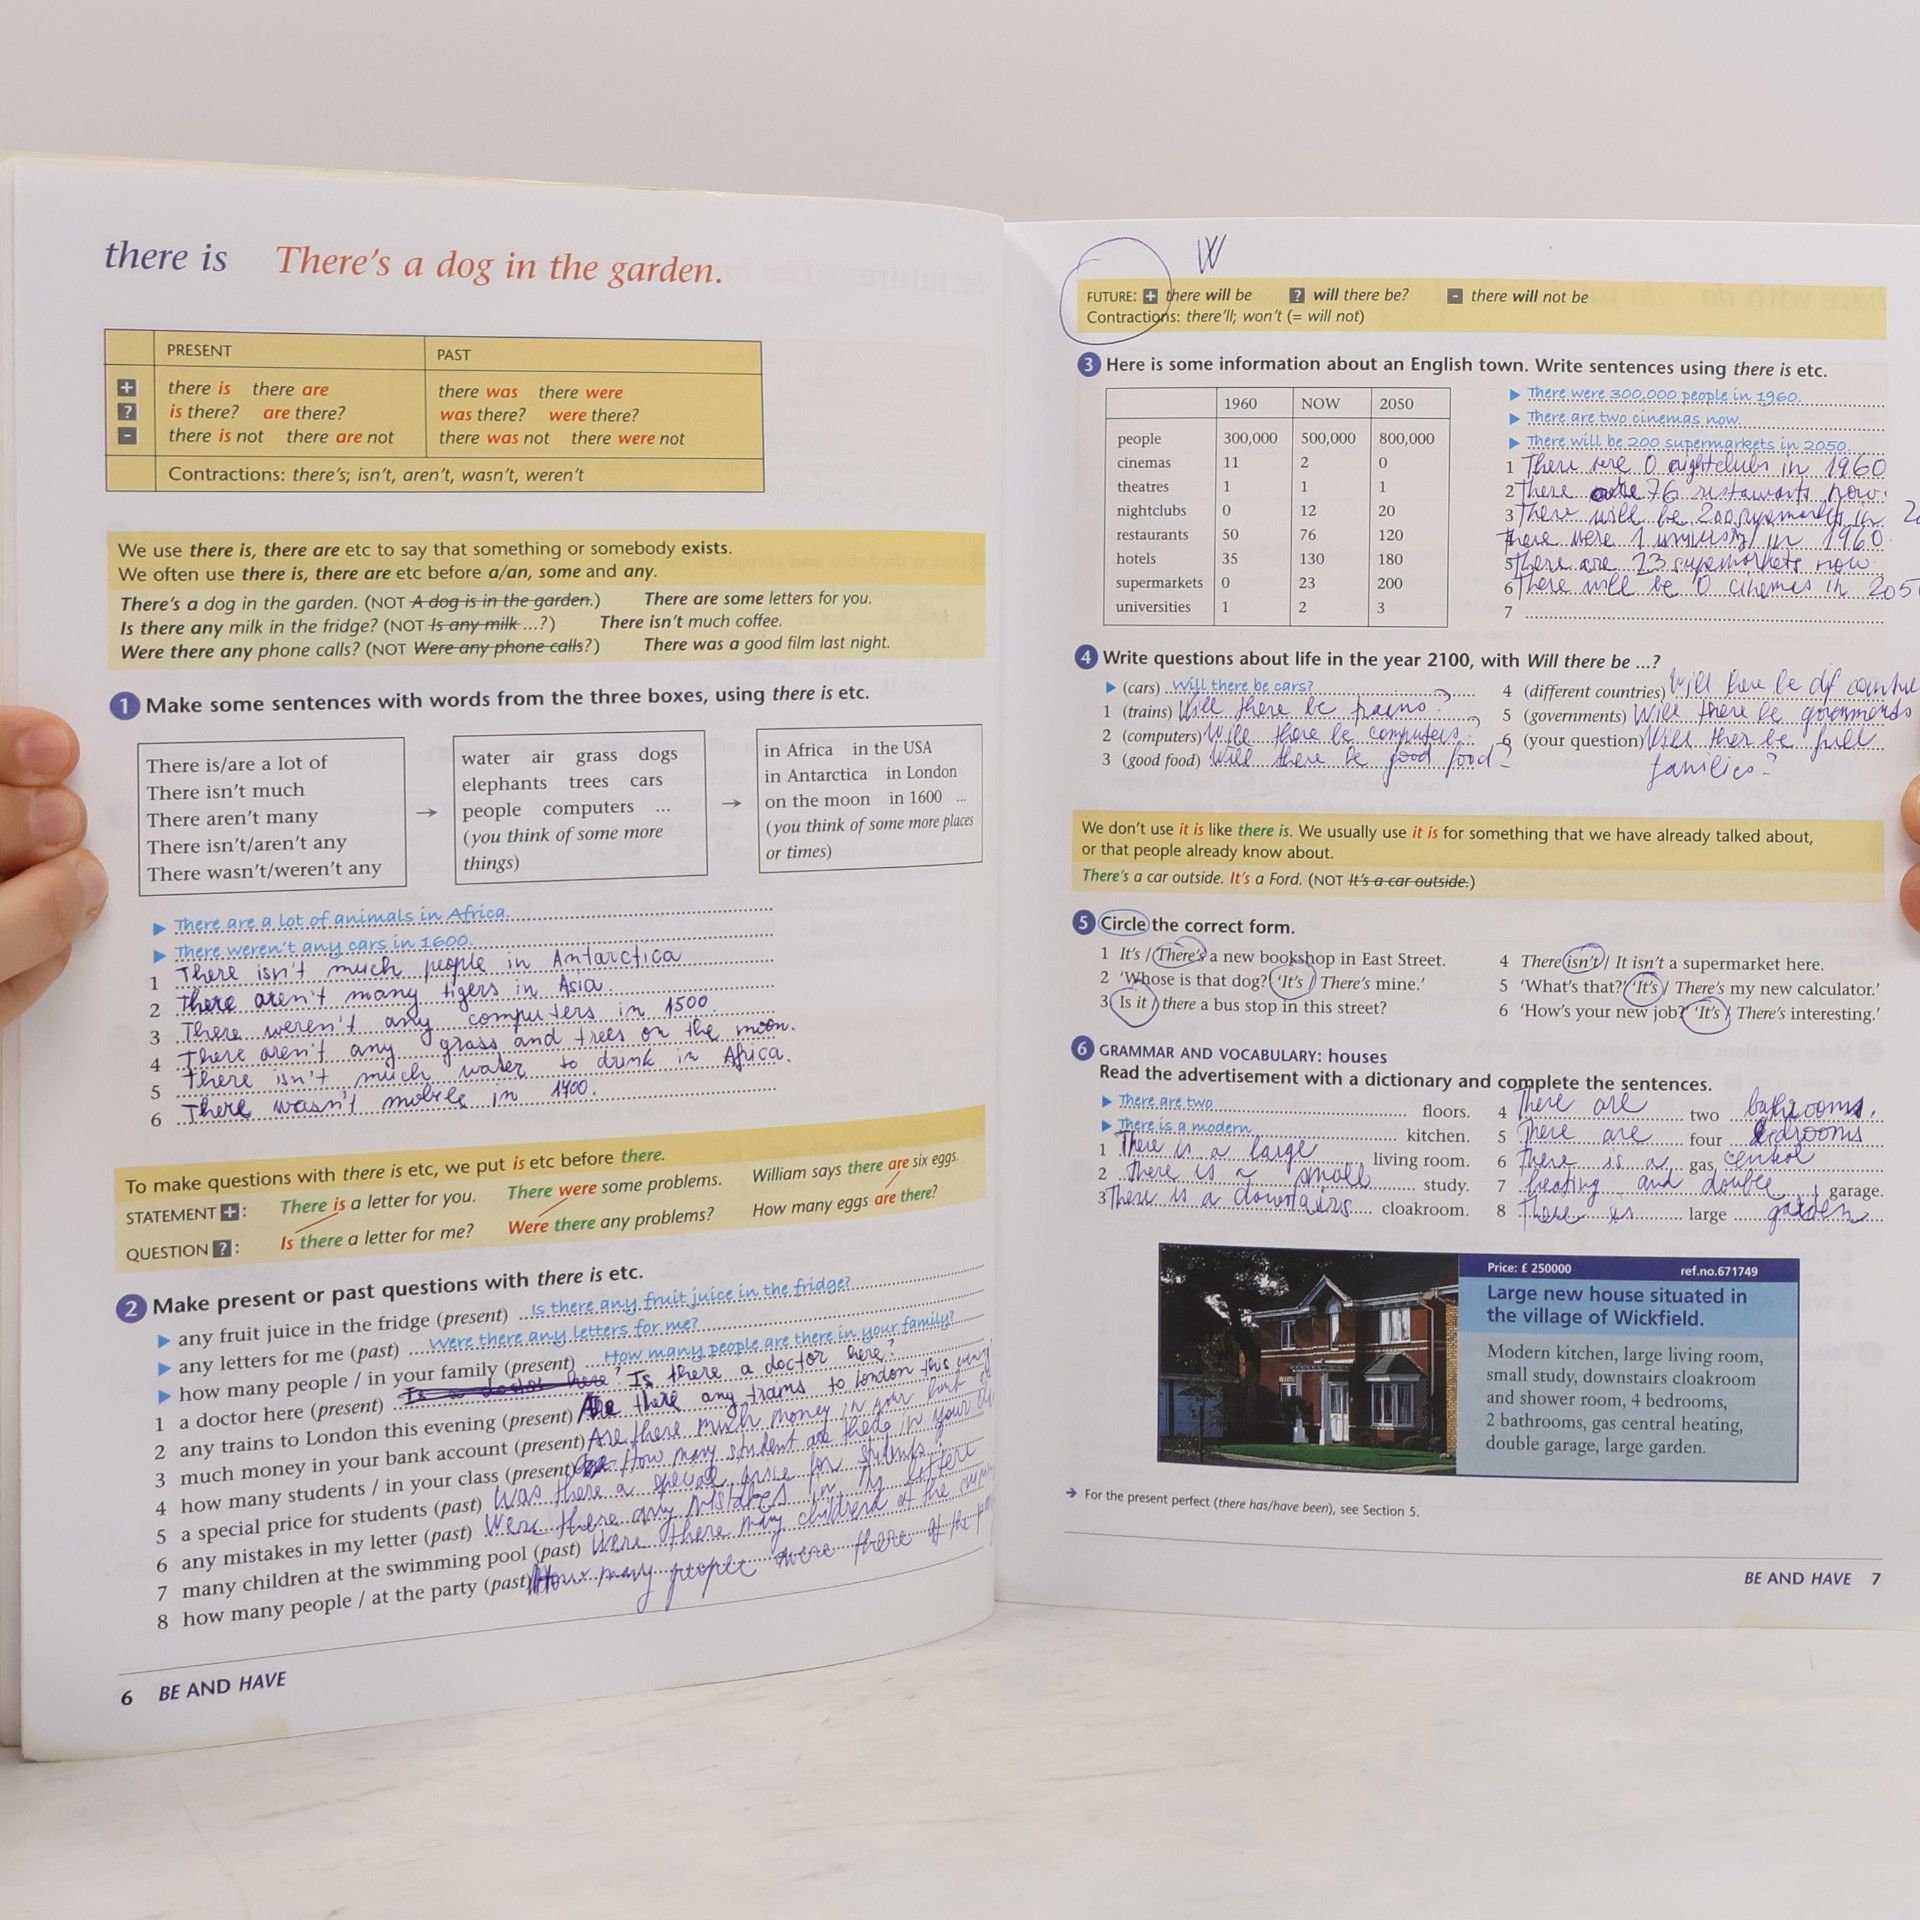 there is There's a dog in the garden.
PRESENT PAST
+ there is there are there was there were
? is there? are there? was there? were there?
- there is not there are not there was not there were not
Contractions: there's; isn't, aren't, wasn't, weren't
We use there is, there are etc to say that something or somebody exists.
We often use there is, there are etc before a/an, some and any.
There's a dog in the garden. (NOT A dog is in the garden.) There are some letters for you.
Is there any milk in the fridge? (NOT Is any milk ...?) There isn't much coffee.
Were there any phone calls? (NOT Were any phone calls?) There was a good film last night.
1 Make some sentences with words from the three boxes, using there is etc.
There is/are a lot of
There isn't much
There aren't many
There isn't/aren't any
There wasn't/weren't any
→
water air grass dogs
elephants trees cars
people computers ...
(you think of some more
things)
→
in Africa in the USA
in Antarctica in London
on the moon in 1600 ...
(you think of some more places
or times)
▶ There are a lot of animals in Africa.
▶ There weren't any cars in 1600.
1 There isn't much people in Antarctica
2 There aren't many tigers in Asia.
3 There weren't any computers in 1500.
4 There aren't any grass and trees on the moon.
5 There isn't much water to drink in Africa.
6 There wasn't mobile in 1400.
To make questions with there is etc, we put is etc before there.
STATEMENT +: There is a letter for you. There were some problems. William says there are six eggs.
QUESTION ?: Is there a letter for me? Were there any problems? How many eggs are there?
2 Make present or past questions with there is etc.
▶ any fruit juice in the fridge (present) Is there any fruit juice in the fridge?
▶ any letters for me (past) Were there any letters for me?
▶ how many people / in your family (present) How many people are there in your family?
1 a doctor here (present) Is a doctor here? Is there a doctor here?
2 any trains to London this evening (present) Are there any trains to London this
3 much money in your bank account (present) Are there much money in your
4 how many students / in your class (present) How many student are there in your
5 a special price for students (past) Was there a special price for students?
6 any mistakes in my letter (past) Were there any mistakes in my
7 many children at the swimming pool (past) Were there many children at the
8 how many people / at the party (past) How many people were there at the
6 BE AND HAVE
W
FUTURE: + there will be ? will there be? - there will not be
Contractions: there'll; won't (= will not)
3 Here is some information about an English town. Write sentences using there is etc.
1960 NOW 2050
people 300,000 500,000 800,000
cinemas 11 2 0
theatres 1 1 1
nightclubs 0 12 20
restaurants 50 76 120
hotels 35 130 180
supermarkets 0 23 200
universities 1 2 3
▶ There were 300,000 people in 1960.
▶ There are two cinemas now.
▶ There will be 200 supermarkets in 2050.
1 There were 0 nightclubs in 1960
2 There are 76 restaurants now.
3 There will be 200 in
there were 1 in 1960.
5 There are 23 supermarkets now.
6 There will be 0 cinemas in 205
7
4 Write questions about life in the year 2100, with Will there be ...?
▶ (cars) Will there be cars?
1 (trains) Will there be trains?
2 (computers) Will there be computers?
3 (good food) Will there be good food?
4 (different countries) Will there be
5 (governments) Will there be
6 (your question) Will ther be full
families?
We don't use it is like there is. We usually use it is for something that we have already talked about,
or that people already know about.
There's a car outside. It's a Ford. (NOT It's a car outside.)
5 Circle the correct form.
1 It's / There's a new bookshop in East Street.
2 'Whose is that dog?' 'It's / There's mine.'
3 Is it / there a bus stop in this street?
4 There isn't / It isn't a supermarket here.
5 'What's that?' 'It's / There's my new calculator.'
6 'How's your new job?' 'It's / There's interesting.'
6 GRAMMAR AND VOCABULARY: houses
Read the advertisement with a dictionary and complete the sentences.
▶ There are two floors.
▶ There is a modern kitchen.
1 There is a large living room.
2 There is a small study.
3 There is a downtairs cloakroom.
4 There are two bathrooms.
5 There are four bedrooms
6 There is a gas central
7 heating and double garage.
8 There is large garden
Price: £ 250000 ref.no.671749
Large new house situated in
the village of Wickfield.
Modern kitchen, large living room,
small study, downstairs cloakroom
and shower room, 4 bedrooms,
2 bathrooms, gas central heating,
double garage, large garden.
→ For the present perfect (there has/have been), see Section 5.
BE AND HAVE 7